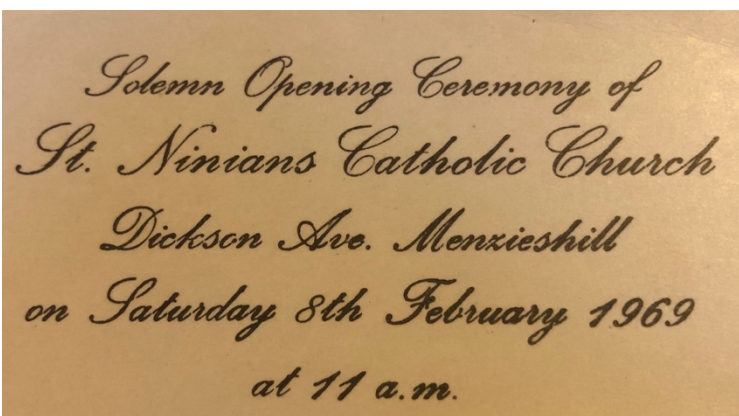 Solemn Opening Ceremony of
St. Ninians Catholic Church
Dickson Ave. Menzieshill
on Saturday 8th February 1969
at 11 a.m.